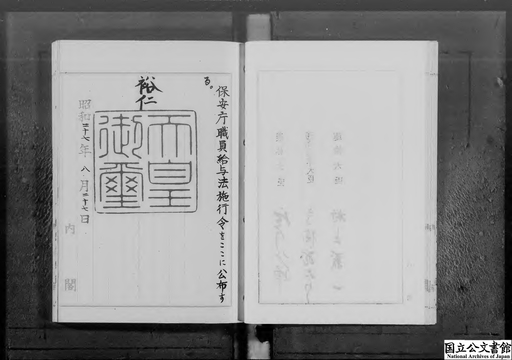 保安庁職員給与法施行令をここに公布す
る。
裕仁
天皇
御璽
昭和二十七年八月二十七日
内閣
国立公文書館
National Archives of Japan